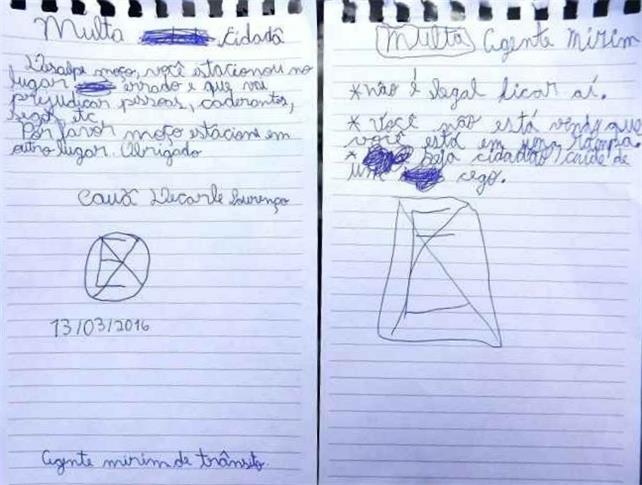 Multa Cidadã
Desculpe moço, você estacionou no
lugar errado e que vai
prejudicar pessoas, cadeirantes,
cegos, etc
Por favor moço estacione em
outro lugar. Obrigado
Cauã Lourenço
E
13/03/2016
Agente mirim de trânsito.
Multa Agente Mirim
* não é legal ficar aí.
* Você não está vendo que
você está em uma rampa.
* Seja cidadão, cuide de
um cego.
E